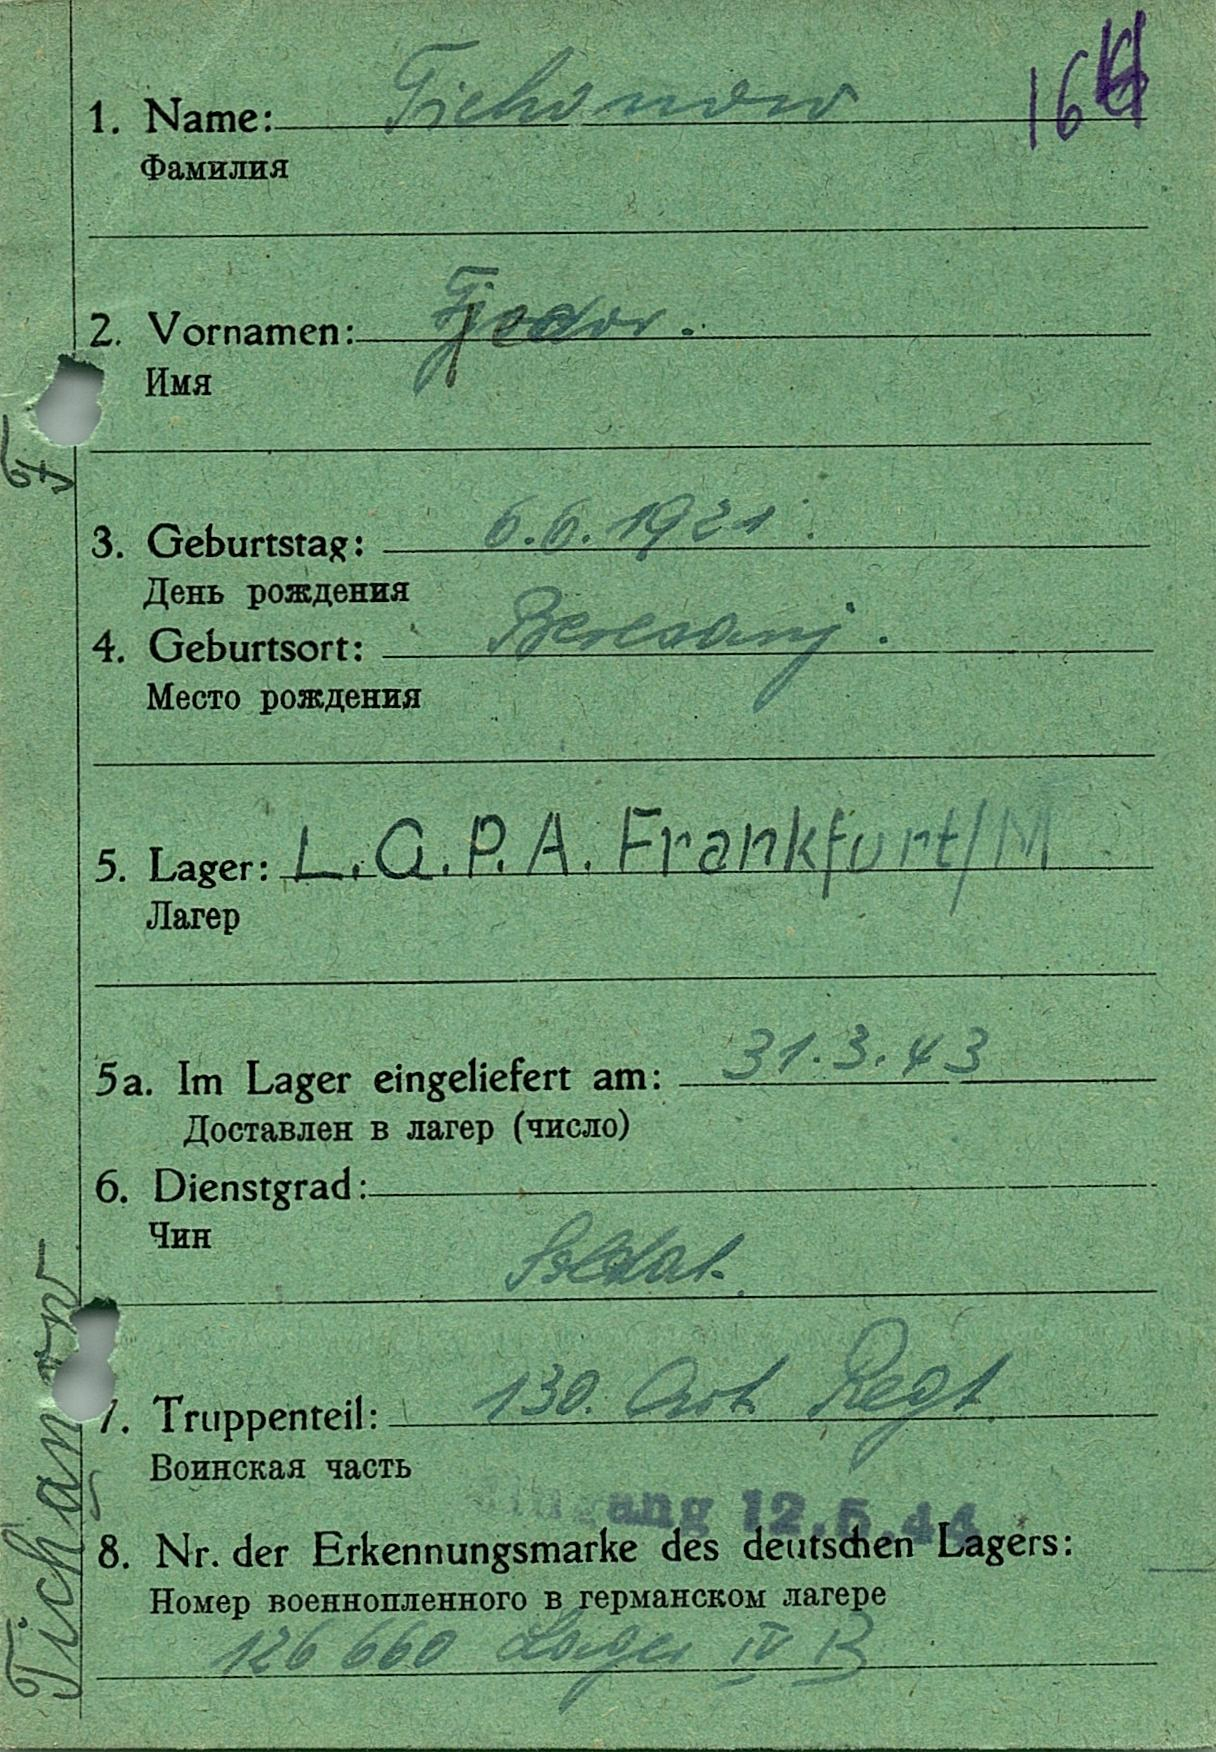 164
1. Name: Tichonow
Фамилия
2. Vornamen: Fjedor.
Имя
F
3. Geburtstag: 6.6.1921.
День рождения
4. Geburtsort: Beresanj.
Место рождения
5. Lager: L.Q.P.A. Frankfurt/M
Лагер
5a. Im Lager eingeliefert am: 31.3.43
Доставлен в лагер (число)
6. Dienstgrad:
Чин
Soldat.
7. Truppenteil: 130. Art. Regt.
Воинская часть
Eingang 12.5.44
8. Nr. der Erkennungsmarke des deutschen Lagers:
Номер военнопленного в германском лагере
126 660 Lager IV B
Tichanow